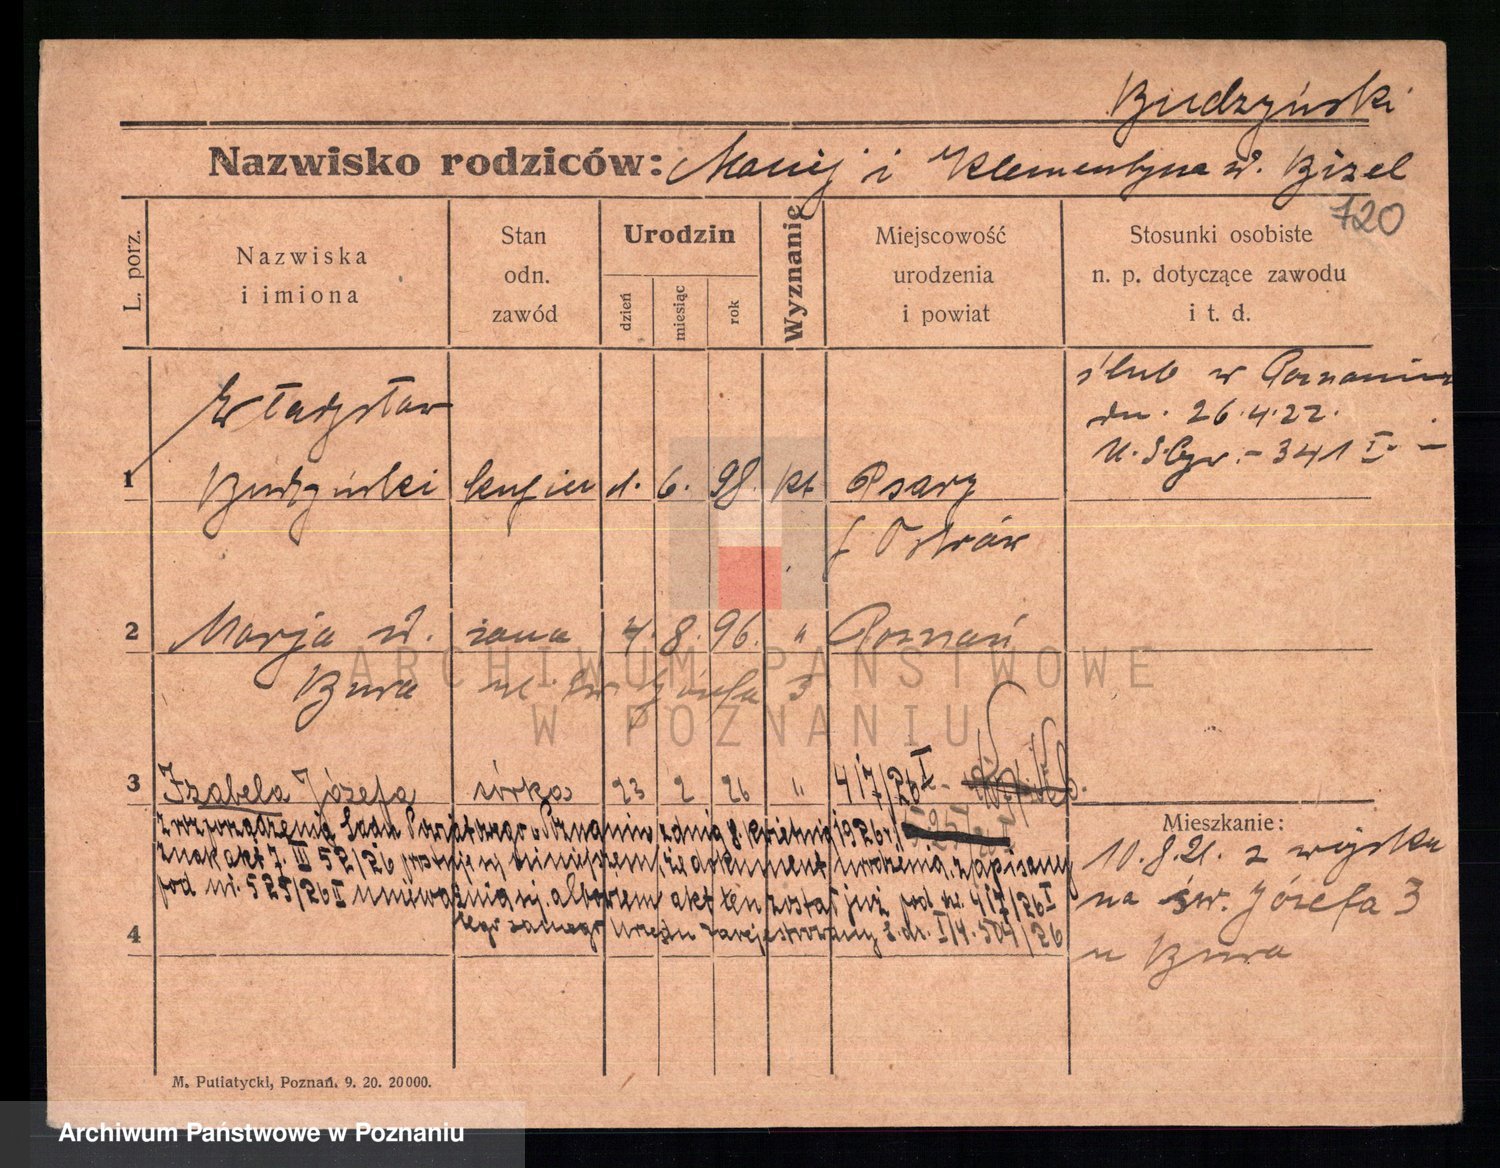 Budzyński
Nazwisko rodziców: Maciej i Klementyna z d. Bizel
720
L. porz.
Nazwiska
i imiona
Stan
odn.
zawód
Urodzin
dzień
miesiąc
rok
Wyznanie
Miejscowość
urodzenia
i powiat
Stosunki osobiste
n. p. dotyczące zawodu
i t. d.
Władysław
ślub w Poznaniu
dn. 26.4.22.
341 I.
1 Budzyński kupiec 6. 98. kt Psary
Ostrów
2 Marja z d. żona 4. 8. 96. " Poznań
Bura ul. św Józefa 3
3 Izabela Józefa córka 23 2 26 " 417/26 I
Z rozporządzenia Sądu Powiatowego w Poznaniu z dnia 8. kwietnia 1926 r.
znak akt 7. III 52/26 prostuje się niniejszem, że dokument urodzenia, zapisany
pod nr. 525/26 I unieważnia się, albowiem akt ten został już pod nr. 417/26 I
tego samego Urzędu zarejestrowany
Mieszkanie:
10.8.21. z wojska
na św. Józefa 3
u Bura
4
M. Putiatycki, Poznań. 9. 20. 20000.
ARCHIWUM PAŃSTWOWE
W POZNANIU
Archiwum Państwowe w Poznaniu